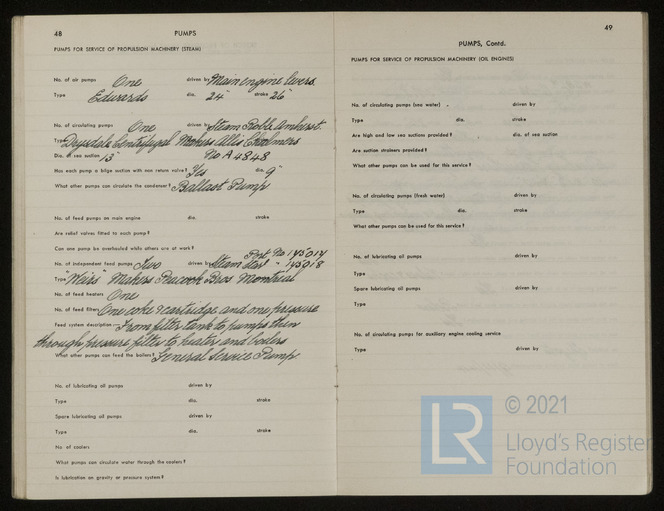 48
PUMPS
PUMPS FOR SERVICE OF PROPULSION MACHINERY (STEAM)
No. of air pumps One driven by Main engine levers.
Type Edwards dia. 24" stroke 26"
No. of circulating pumps One driven by Steam Robb Amherst.
Type Drysdale Centrifugal Makers Allis Chalmers
Dia. of sea suction 13" No A 4848
Has each pump a bilge suction with non return valve? Yes dia. 9"
What other pumps can circulate the condenser? Ballast Pump
No. of feed pumps on main engine dia. stroke
Are relief valves fitted to each pump?
Can one pump be overhauled while others are at work? Port No 145014
No. of independent feed pumps Two driven by Steam Star " 145018
Type "Weirs" Makers Peacock Bros Montreal
No. of feed heaters One
No. of feed filters One coke & cartridge and one pressure
Feed system description From filter tank to pumps then
through pressure filter to heater and boilers
What other pumps can feed the boilers? General Service Pump
No. of lubricating oil pumps driven by
Type dia. stroke
Spare lubricating oil pumps driven by
Type dia. stroke
No of coolers
What pumps can circulate water through the coolers?
Is lubrication on gravity or pressure system?
49
PUMPS, Contd.
PUMPS FOR SERVICE OF PROPULSION MACHINERY (OIL ENGINES)
No. of circulating pumps (sea water) driven by
Type dia. stroke
Are high and low sea suctions provided? dia. of sea suction
Are suction strainers provided?
What other pumps can be used for this service?
No. of circulating pumps (fresh water) driven by
Type dia. stroke
What other pumps can be used for this service?
No. of lubricating oil pumps driven by
Type
Spare lubricating oil pumps driven by
Type
No. of circulating pumps for auxiliary engine cooling service
Type driven by
LR
© 2021
Lloyd's Register
Foundation